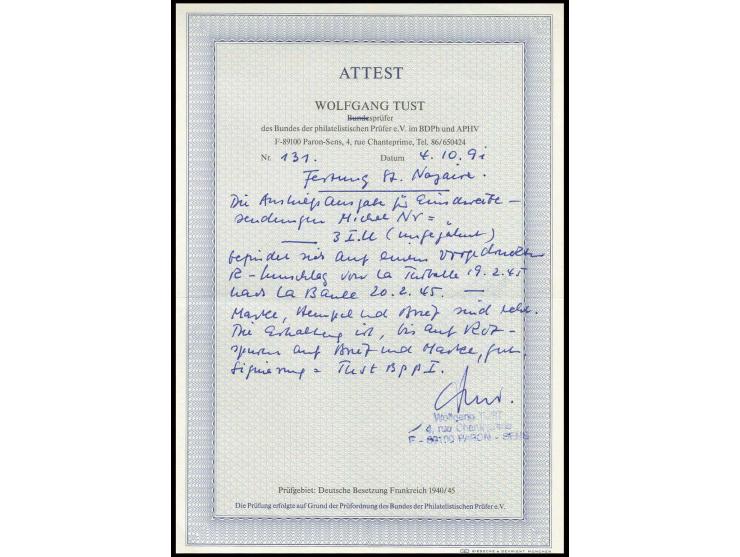 ATTEST
WOLFGANG TUST
Bundesprüfer
des Bundes der philatelistischen Prüfer e.V. im BDPh und APHV
F-89100 Paron-Sens, 4, rue Chanteprime, Tel. 86/650424
Nr. 131. Datum 4.10.91
Festung St. Nazaire.
Die Aushilfsausgabe für Einschreibe-
sendungen Michel Nr =
3 I.U (ungezähnt)
befindet sich auf einem vorgedruckten
R-Umschlag von La Turballe 19.2.45
nach La Baule 20.2.45. —
Marke, Stempel und Brief sind echt.
Die Erhaltung ist, bis auf Rost-
spuren auf Brief und Marke, gut.
Signierung = Tust BPP I.
Wolfgang TUST
4, rue Chanteprime
F - 89100 PARON - SENS
Prüfgebiet: Deutsche Besetzung Frankreich 1940/45
Die Prüfung erfolgte auf Grund der Prüfordnung des Bundes der Philatelistischen Prüfer e.V.
GIESECKE & DEVRIENT MÜNCHEN